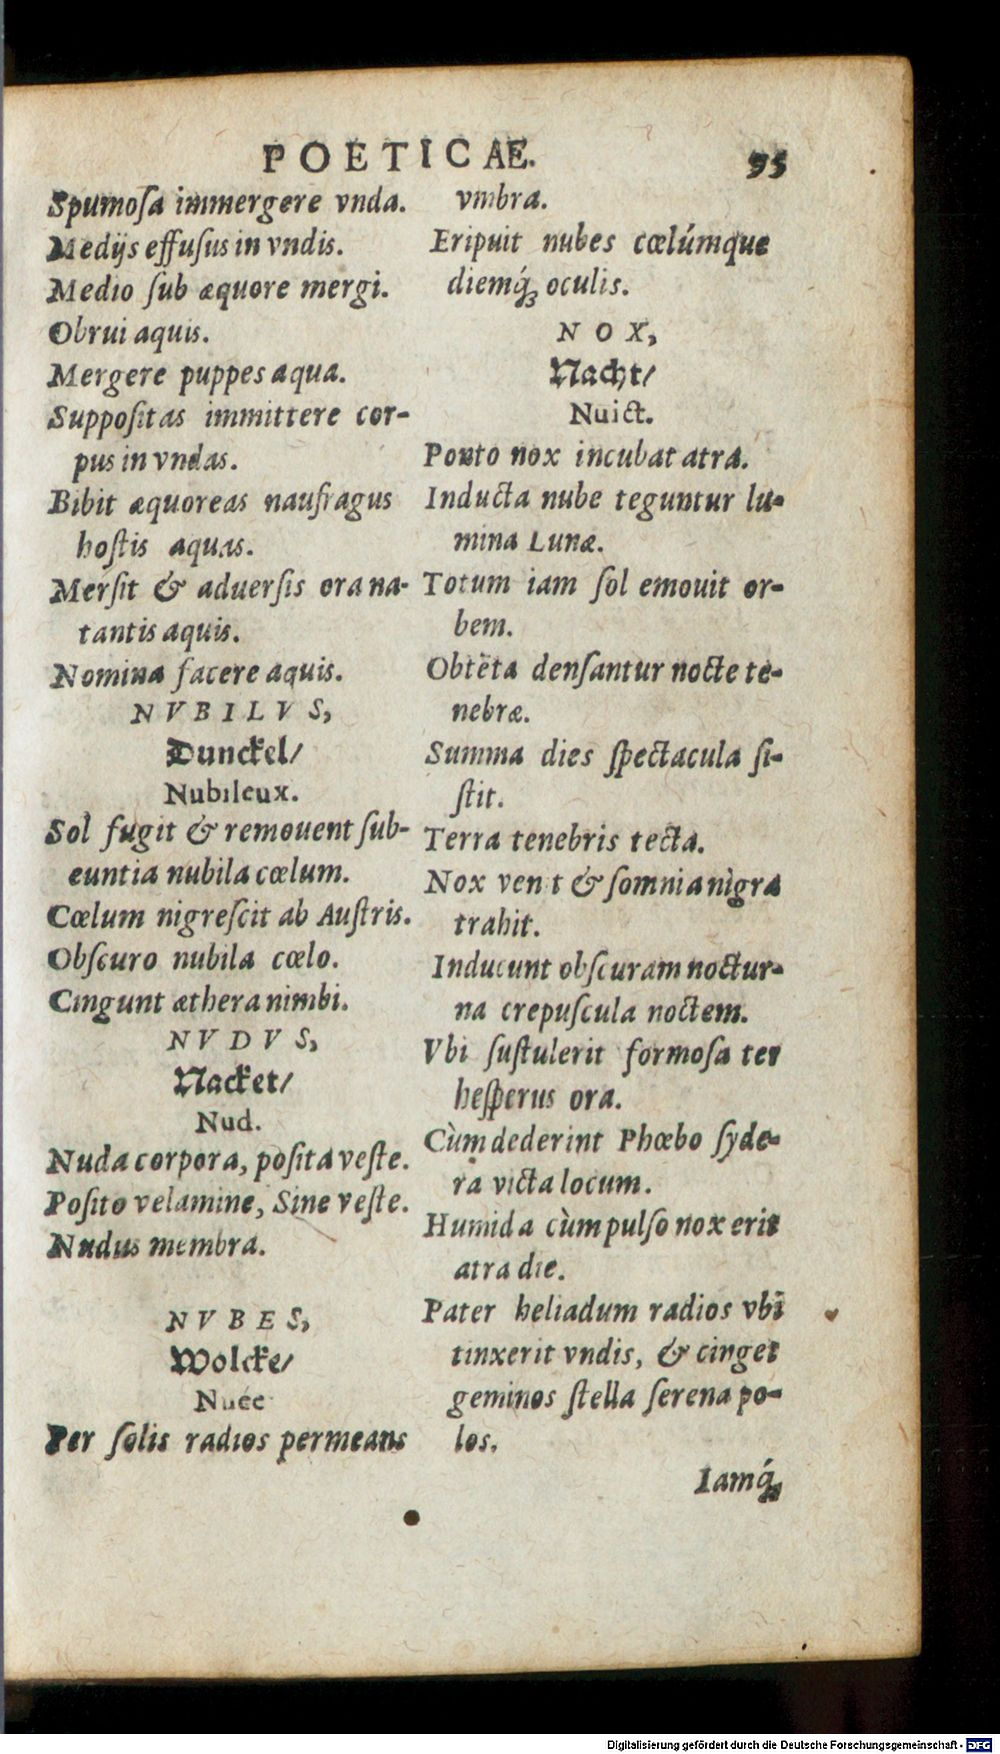 POETICAE. 95
Spumoſa immergere vnda.
Medijs effuſus in vndis.
Medio ſub æquore mergi.
Obrui aquis.
Mergere puppes aqua.
Suppoſitas immittere cor-
pus in vndas.
Bibit æquoreas naufragus
hoſtis aquas.
Merſit & aduerſis ora na-
tantis aquis.
Nomina facere aquis.
NVBILVS,
Dunckel/
Nubileux.
Sol fugit & remouent ſub-
euntia nubila cœlum.
Cœlum nigreſcit ab Auſtris.
Obſcuro nubila cœlo.
Cingunt æthera nimbi.
NVDVS,
Nacket/
Nud.
Nuda corpora, poſita veſte.
Poſito velamine, Sine veſte.
Nudus membra.
NVBES,
Wolcke/
Nuée
Per ſolis radios permeans
vmbra.
Eripuit nubes cœlúmque
diemq́ꝫ oculis.
NOX,
Nacht/
Nuict.
Ponto nox incubat atra.
Inducta nube teguntur lu-
mina Lunæ.
Totum iam ſol emouit or-
bem.
Obtẽta denſantur nocte te-
nebræ.
Summa dies ſpectacula ſi-
ſtit.
Terra tenebris tecta.
Nox ven t & ſomnia nigra
trahit.
Inducunt obſcuram noctur-
na crepuſcula noctem.
Vbi ſuſtulerit formoſa ter
heſperus ora.
Cùm dederint Phœbo ſyde-
ra victa locum.
Humida cùm pulſo nox erit
atra die.
Pater heliadum radios vbi
tinxerit vndis, & cinget
geminos ſtella ſerena po-
los.
Iamq́ꝫ
Digitalisierung gefördert durch die Deutsche Forschungsgemeinschaft - DFG